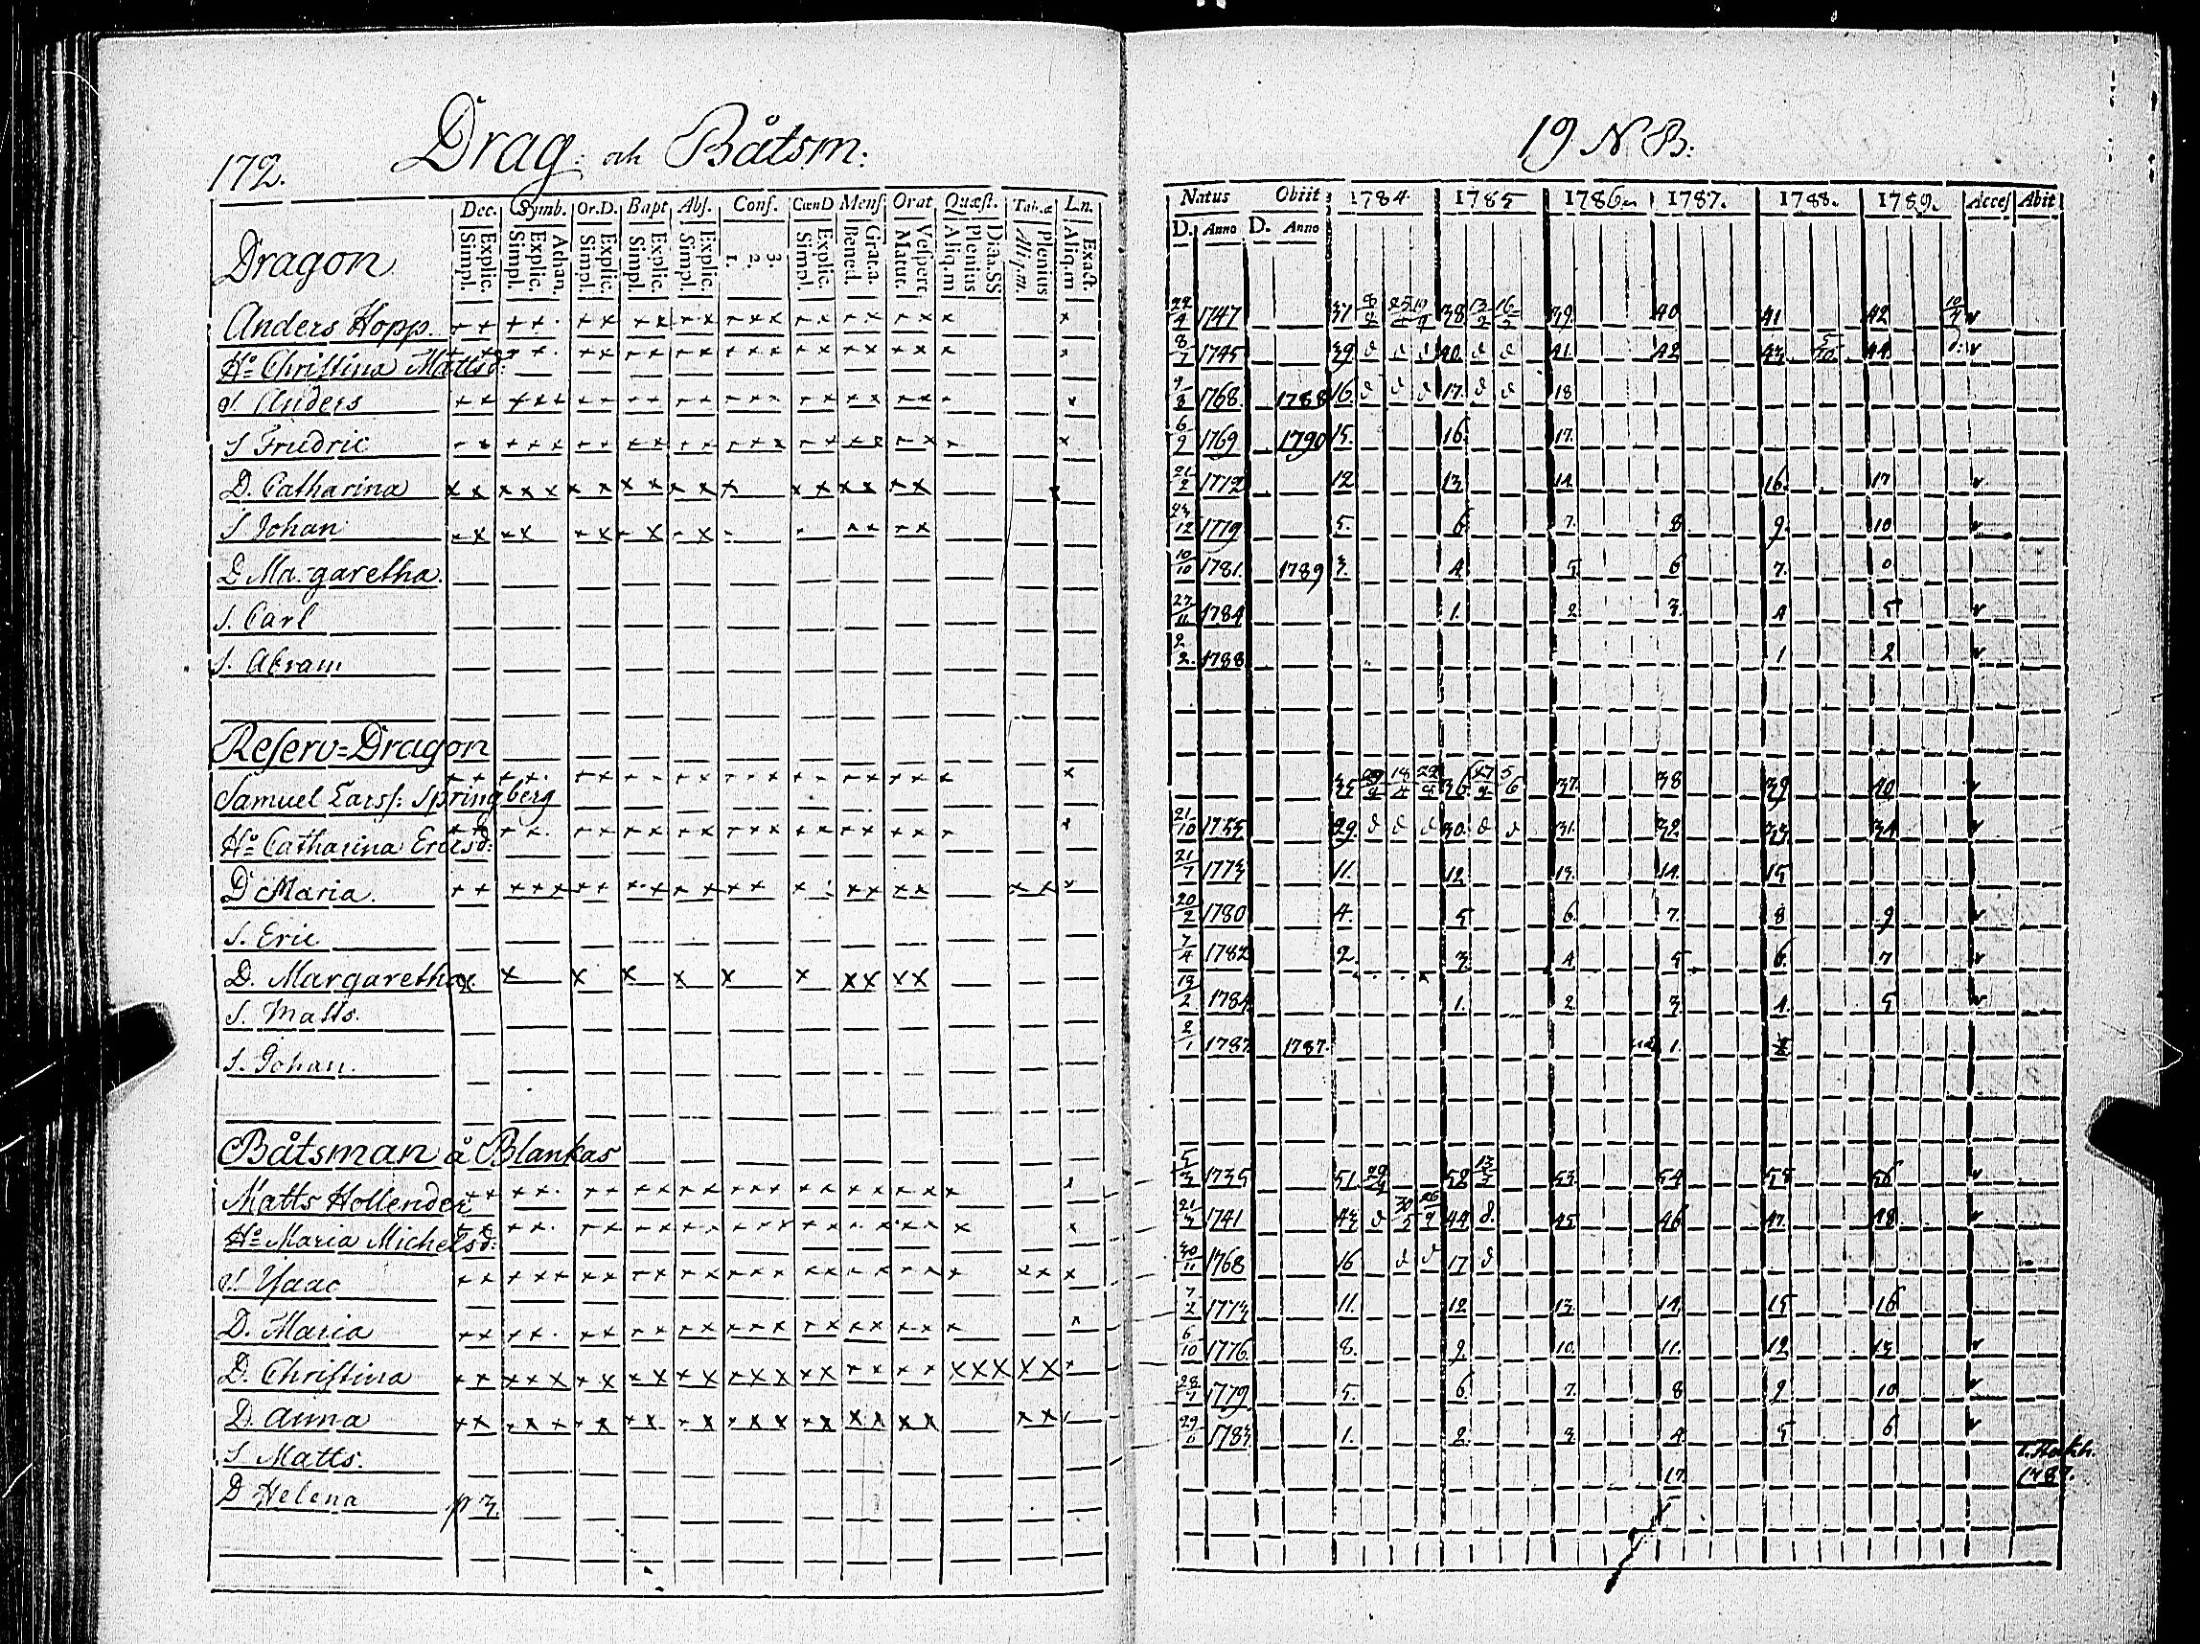 172. Drag: och Båtsm:
19 N B:
Dec. Symb. Or.D. Bapt Abs. Conf. CœnD Mens Orat Quæst. Tab.œ Ln.
Simpl. Explic. Simpl. Explic. Athan. Simpl. Explic. Simpl. Explic. Simpl. Explic. 1. 2. 3. Simpl. Explic. Bened. Grat.a. Matut. Vespert. Aliq.m Plenius Diaa.SS Aliq.m. Plenius Aliq.m Exact.
Natus Obiit 1784. 1785 1786. 1787. 1788. 1789. Acces Abit
D. Anno D. Anno
Dragon
Anders Hopp. 22/4 1747 37 38 39. 40 41 42
H:o Christina Mattsd: 8/7 1745 39 40. 41. 42 43 44
S. Anders 9/8 1768 1788 16. 17. 18
S Fredric 6/9 1769 1790 15. 16 17.
D. Catharina 21/2 1772 12 13 14. 16. 17
S Johan 1779 5. 6 7. 8 9. 10
D Margaretha. 10/10 1781. 1789 3. 4 5 6 7. 0
S. Carl 27/11 1784 1. 2 3. 4 5
S. Abram 2/2. 1788 1 2
Reserv=Dragon
Samuel Larss: Springberg 35 36 37. 38 39 40
H:o Catharina Ericsd: 21/10 29. 30. 31. 32 33. 34
D Maria. 21/7 1773 11. 12 13. 14. 15
S. Eric 20/2 1780 4. 5 6. 7. 8 9
D. Margaretha. 7/4 1782 2. 3 4 5 6. 7
S. Matts. 19/2. 1784. 1. 2 3 4. 5
S. Johan. 2/1 1787 1787. 1.
Båtsman å Blankas
Matts Hollender 5/3 1735 51. 52 53 54 55 56
H:o Maria Michelsd: 21/3 1741 43 44 45 46 47. 48
S. Isaac 30/11 1768 16 17
D. Maria 7/2 1773 11. 12 13. 14 15 16
D. Christina 6/10 1776. 8. 9. 10. 11. 12 13
D. Anna 28/7 1779. 5. 6. 7. 8 9 10
S Matts. 1783. 1. 2. 3 4. 5 6
D Helena 17
1787.